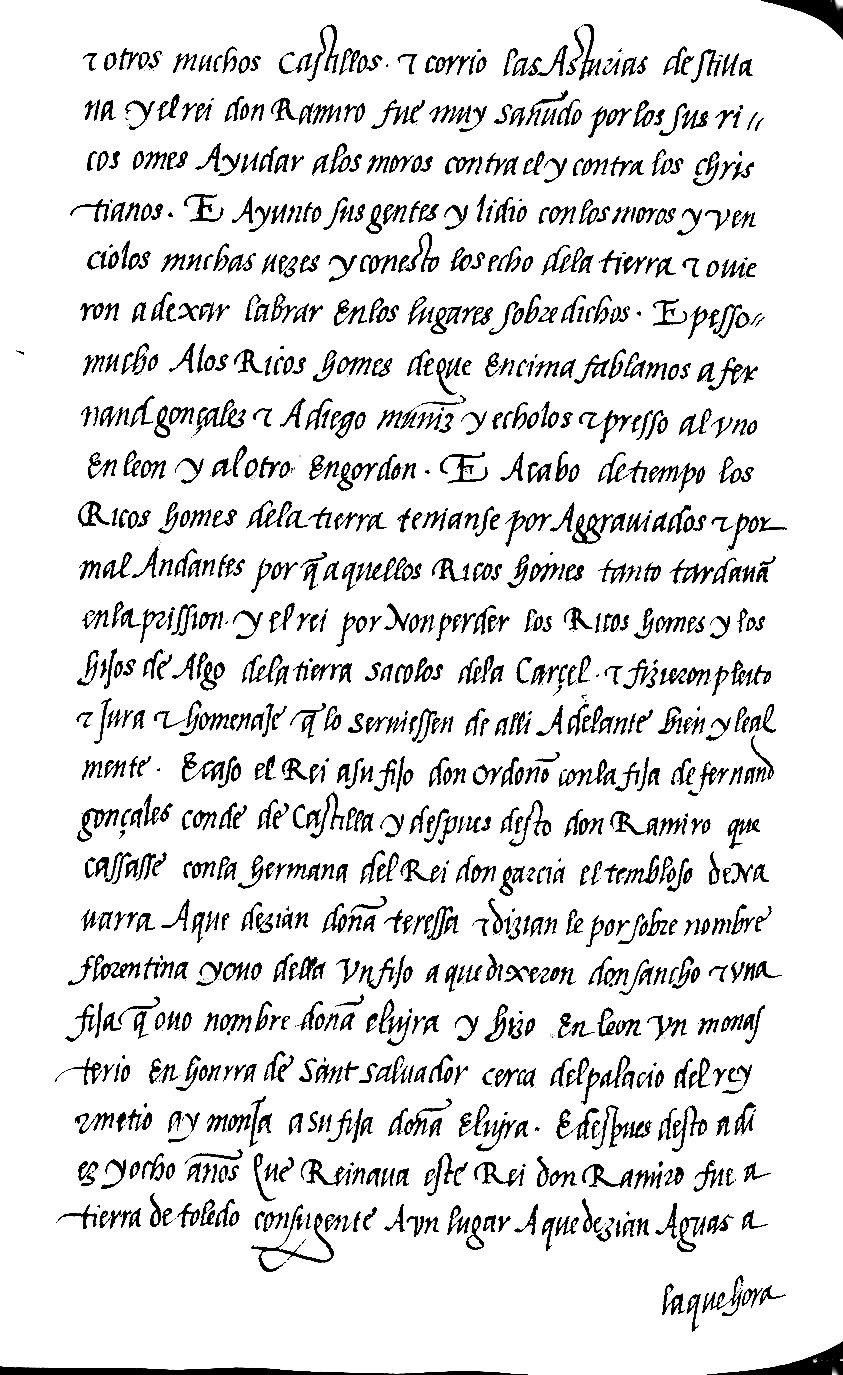 ⁊ otros muchos Castillos. ⁊ corrio las Asturias de stilla
na y el rei don Ramiro fue muy sañudo por los sus ri //
cos omes Ayudar a los moros contra el y contra los chris
tianos. E Ayunto sus gentes y lidio con los moros y ven
ciolos muchas uezes y con esto los echo de la tierra ⁊ ouie
ron a dexar labrar En los lugares sobre dichos. E pesso //
mucho A los Ricos homes de que Encima fablamos a fer
nand gonçalez ⁊ A diego muñiz y echolos ⁊ presso al vno
En leon y al otro En gordon. E A cabo de tiempo los
Ricos homes de la tierra tenianse por Aggrauiados ⁊ por
mal Andantes por q̃ aquellos Ricos homes tanto tardauã
en la prission. y el rei por Non perder los Ricos homes y los
hijos de Algo de la tierra sacolos de la Carçel. ⁊ fizieron pleito
⁊ Jura ⁊ homenaje q̃ lo seruiessen de alli Adelante bien y leal
mente. E caso el Rei a su fijo don ordoño con la fija de fernand
gonçales conde de Castilla y despues desto don Ramiro que
cassasse con la hermana del Rei don garcia el tembloso de Na
uarra A que dezian doña teressa ⁊ dizian le por sobre nombre
florentina y ouo della Vn fijo a que dixeron don sancho ⁊ vna
fija q̃ ouo nombre doña eluira y hizo En leon vn monas
terio En honrra de Sant Saluador cerca del palacio del rey
⁊ metio ay monja a su fija doña Eluira. E despues desto a di
ez y ocho años Que Reinaua este Rei don Ramiro fue a
tierra de toledo con su gente A vn lugar A que dezian Aguas a
la que hora